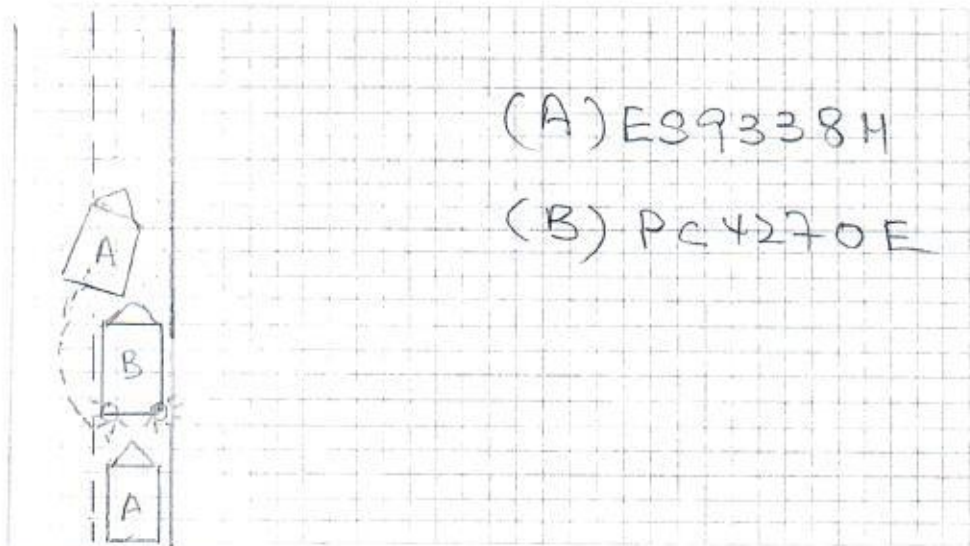 (A) ES9338H
(B) PC4270E
A
B
A